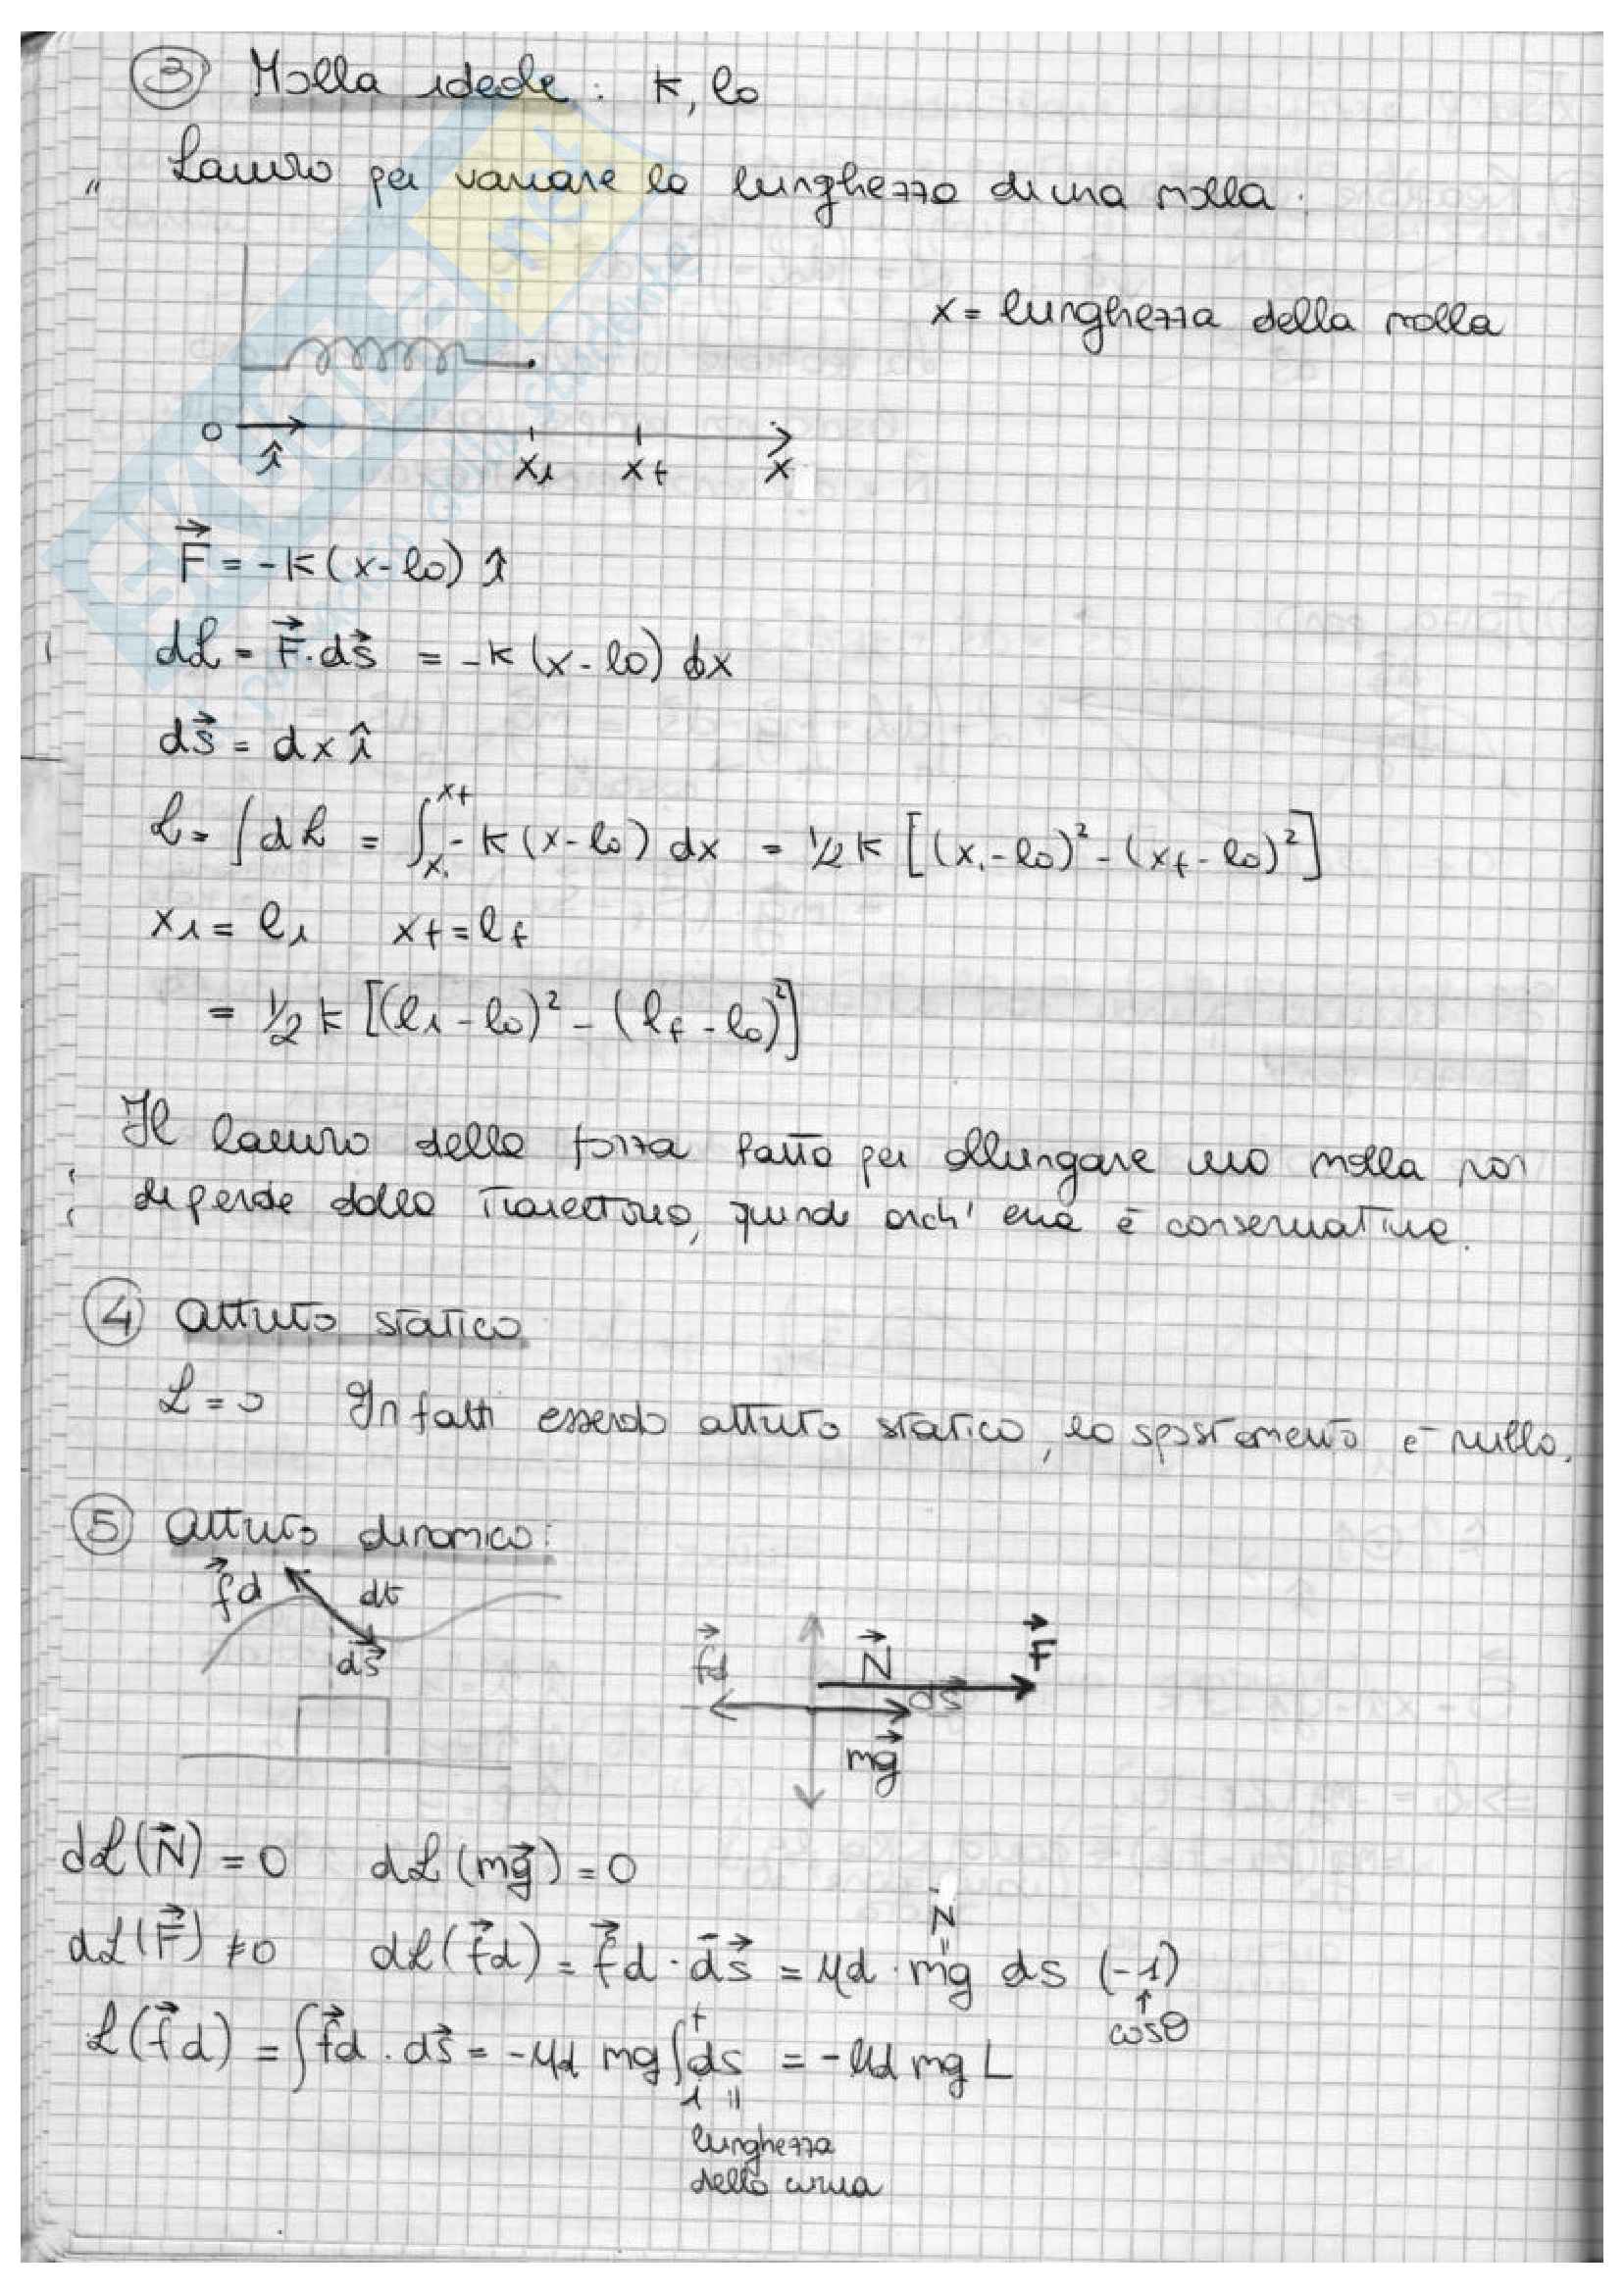 ③ Molla ideale: K, l₀
" Lavoro per variare la lunghezza di una molla.
x = lunghezza della molla
O î xi xf x
F⃗ = -K(x-l₀) î
dℒ = F⃗·ds⃗ = -K(x-l₀) dx
ds⃗ = dx î
ℒ = ∫dℒ = ∫_{xi}^{xf} -K(x-l₀) dx = ½ K [(xi-l₀)² - (xf-l₀)²]
xi = li xf = lf
= ½ K [(li-l₀)² - (lf-l₀)²]
Il lavoro della forza fatto per allungare una molla non
dipende dalla traiettoria, quindi anch' essa è conservativa.
④ Attrito statico
ℒ = 0 Infatti essendo attrito statico, lo spostamento è nullo.
⑤ Attrito dinamico:
f⃗d dt
ds⃗
f⃗d N⃗ F⃗
ds⃗
mg⃗
dℒ(N⃗) = 0 dℒ(mg⃗) = 0
N
=
dℒ(F⃗) ≠ 0 dℒ(f⃗d) = f⃗d · ds⃗ = μd · mg ds (-1)
↑
cosθ
ℒ(f⃗d) = ∫f⃗d · ds⃗ = -μd mg ∫_{i}^{f} ds = -μd mg L
=
lunghezza
della curva
SKUOLA.net